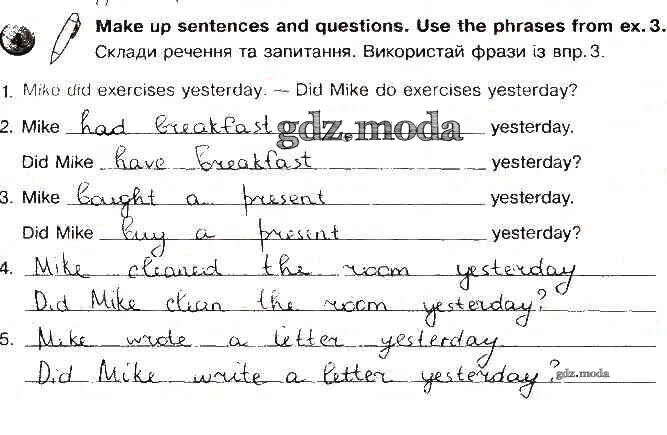 Make up sentences and questions. Use the phrases from ex. 3.
Склади речення та запитання. Використай фрази із впр. 3.
1. Mike did exercises yesterday. — Did Mike do exercises yesterday?
2. Mike had breakfast gdz.moda yesterday.
Did Mike have breakfast yesterday?
3. Mike bought a present yesterday.
Did Mike buy a present yesterday?
4. Mike cleaned the room yesterday
Did Mike clean the room yesterday?
5. Mike wrote a letter yesterday
Did Mike write a letter yesterday?
gdz.moda